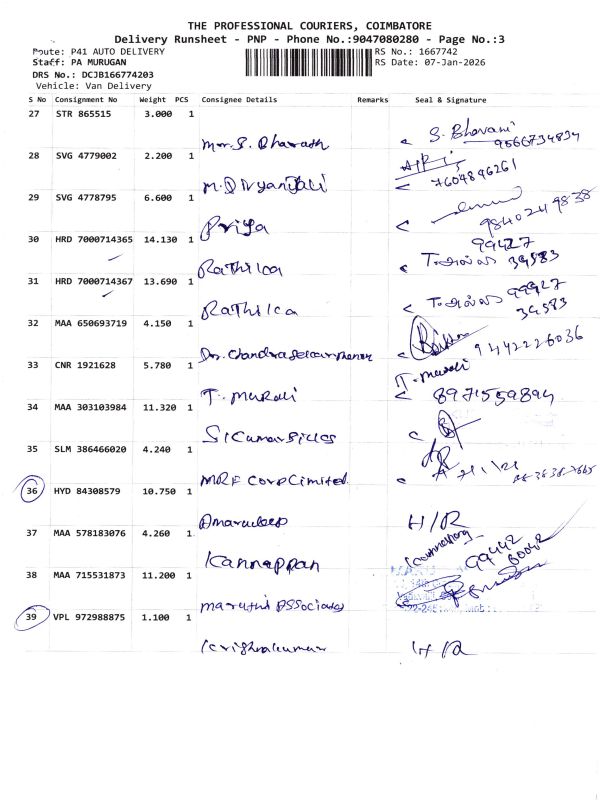 THE PROFESSIONAL COURIERS, COIMBATORE
Delivery Runsheet - PNP - Phone No.:9047080280 - Page No.:3
Route: P41 AUTO DELIVERY RS No.: 1667742
Staff: PA MURUGAN RS Date: 07-Jan-2026
DRS No.: DCJB166774203
Vehicle: Van Delivery
S No Consignment No Weight PCS Consignee Details Remarks Seal & Signature
27 STR 865515 3.000 1
Mr. S. Bharath S. Bhavani
9566734834
28 SVG 4779002 2.200 1
M. Divyanjali 7604896261
29 SVG 4778795 6.600 1
Priya 9840249838
30 HRD 7000714365 14.130 1
Rathika 99427 39583
31 HRD 7000714367 13.690 1
Rathika 99427 39583
32 MAA 650693719 4.150 1
Dr. Chandrasekar 9442226036
33 CNR 1921628 5.780 1
T. Murali T. Murali
8971559894
34 MAA 303103984 11.320 1
35 SLM 386466020 4.240 1
MRF Corp Limited
36 HYD 84308579 10.750 1
Amardeep H/R
37 MAA 578183076 4.260 1
Kannappan 99442 80042
38 MAA 715531873 11.200 1
Maruthi Associates
39 VPL 972988875 1.100 1
Krishnakumar H/R